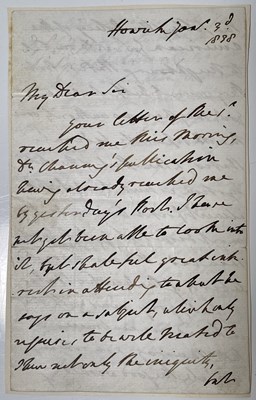 Howick Jan. 3d
1838
My Dear Sir
Your letter of the
reached me this morning,
Dr Channing's publication
having already reached me
by yesterday's Post. I have
not yet been able to look into
it, but shall feel great int
rest in attending to what he
says on a subject, which only
requires to be well treated to
shew not only the iniquity,
but